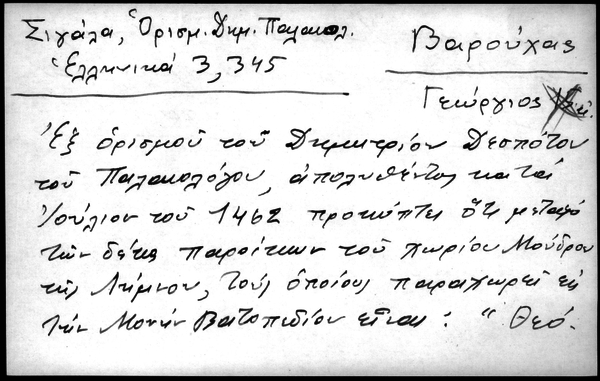 Σιγάλα, Ὁρισμ. Δημ. Παλαιολ.
Ἑλληνικά 3, 345
Βαρούχας
Γεώργιος
Ἐξ ὁρισμοῦ τοῦ Δημητρίου Δεσπότου
τοῦ Παλαιολόγου, ἀπολυθέντος κατά
Ἰούλιον τοῦ 1462 προκύπτει ὅτι μεταξύ
τῶν δέκα παροίκων τοῦ χωρίου Μούδρου
τῆς Λήμνου, τούς ὁποίους παραχωρεῖ εἰς
τήν Μονήν Βατοπεδίου εἶναι : "Θεό-